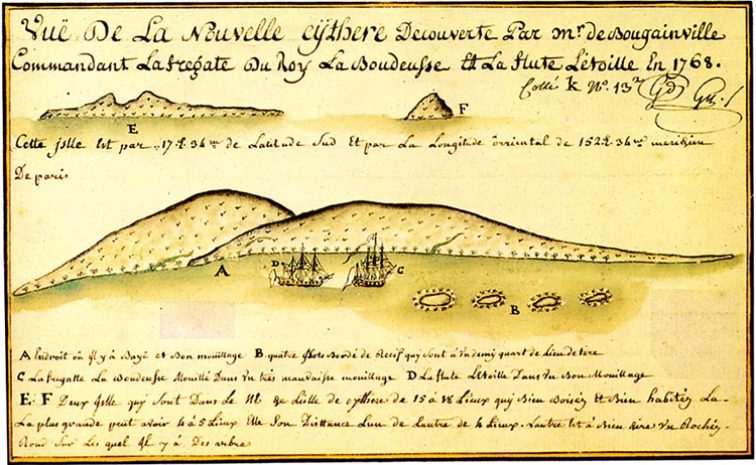 Vuë De La Nouvelle cÿthere Decouverte Par mr. de Bougainville
Commandant La fregate Du Roy La Boudeusse Et La flute Letoille En 1768.
Cotté k No. 13
E
F
Cette jslle Est par 17 34 de Latitude Sud Et par La Longitude orriental de 152 36 meridien
De paris
A
D
C
B
A Lendroit où jl y à Bayë et Bon mouillage B quatre jlots Bordé de Recif quy sont à Un demy quart de Lieu de tere
C La fregatte La Boudeusse Mouillé Dans Un très mauvaisse mouillage D La flute Letoille Dans Un Bon Mouillage
E. F Deux jslle quy sont Dans Le de Lisle de cythere de 15 à 18 Lieux quy Bien Boiséz Et Bien habitéz La
La plus grande peut avoir 4 à 5 Lieux Elle Son Disttance Lun de Lautre de 4 Lieux. Lautre Et à Bien dire Un Rochéz
Rond sur Les quel jl y à Des arbre